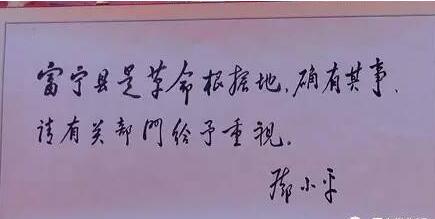 富宁县是革命根据地，确有其事，
请有关部門给予重視。
邓小平